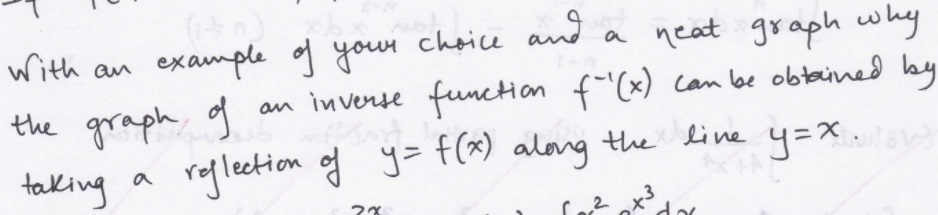 With an example of your choice and a neat graph why
the graph of an inverse function f⁻¹(x) can be obtained by
taking a reflection of y = f(x) along the line y = x.